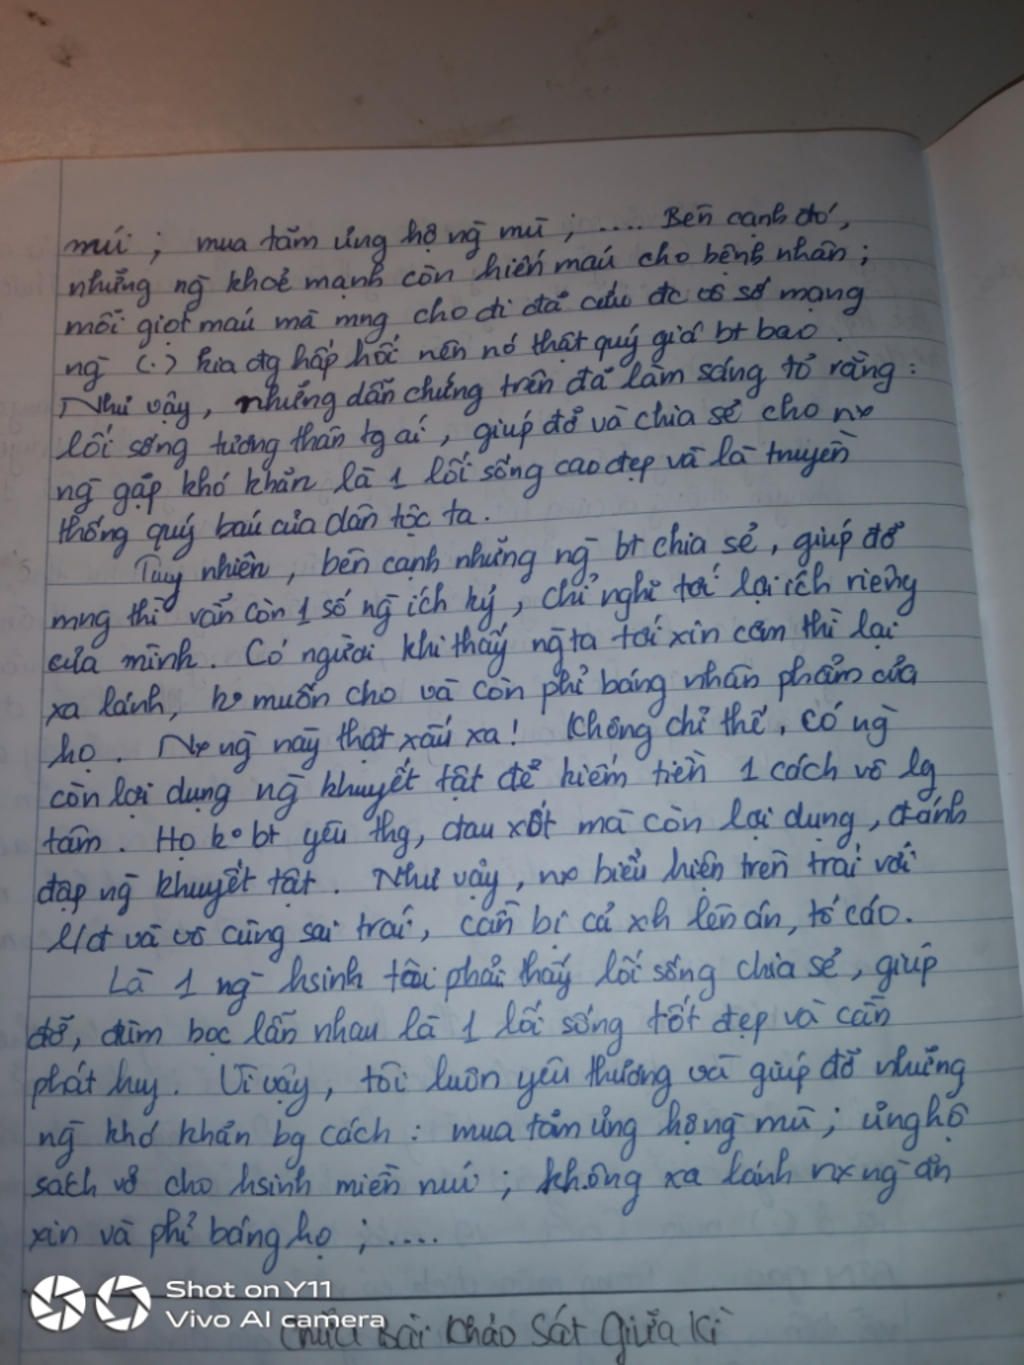 múi ; mua tăm ủng hộ ng̅ mù ; .... Bên cạnh đó,
những ng̅ khoẻ mạnh còn hiến máu cho bệnh nhân ;
mỗi giọt máu mà mng cho đi đã cứu đc vô số mạng
ng̅ (.) kia đg hấp hối nên nó thật quý giá bt bao .
Như vậy, những dẫn chứng trên đã làm sáng tỏ rằng :
lối sống tương thân tg ái , giúp đỡ và chia sẻ cho nx
ng̅ gặp khó khăn là 1 lối sống cao đẹp và là truyền
thống quý báu của dân tộc ta .
Tuy nhiên , bên cạnh những ng̅ bt chia sẻ , giúp đỡ
mng thì vẫn còn 1 số ng̅ ích kỷ , chỉ nghĩ tới lợi ích riêng
của mình . Có người khi thấy ng̅ ta tới xin cơm thì lại
xa lánh, ko muốn cho và còn phỉ báng nhân phẩm của
họ . Nx ng̅ này thật xấu xa ! Không chỉ thế , có ng̅
còn lợi dụng ng̅ khuyết tật để kiếm tiền 1 cách vô lg
tâm . Họ ko bt yêu thg, đau xót mà còn lợi dụng , đánh
đập ng̅ khuyết tật . Như vậy , nx biểu hiện trên trái với
l/đ và vô cùng sai trái , cần bị cả xh lên án, tố cáo.
Là 1 ng̅ hsinh tôi phải thấy lối sống chia sẻ , giúp
đỡ, đùm bọc lẫn nhau là 1 lối sống tốt đẹp và cần
phát huy . Vì vậy , tôi luôn yêu thương và giúp đỡ những
ng̅ khó khăn bg cách : mua tăm ủng hộ ng̅ mù ; ủng hộ
sách vở cho hsinh miền núi ; không xa lánh nx ng̅ ăn
xin và phỉ báng họ ; ....
Shot on Y11
Vivo AI camera
Chữa Bài Khảo Sát Giữa Kì